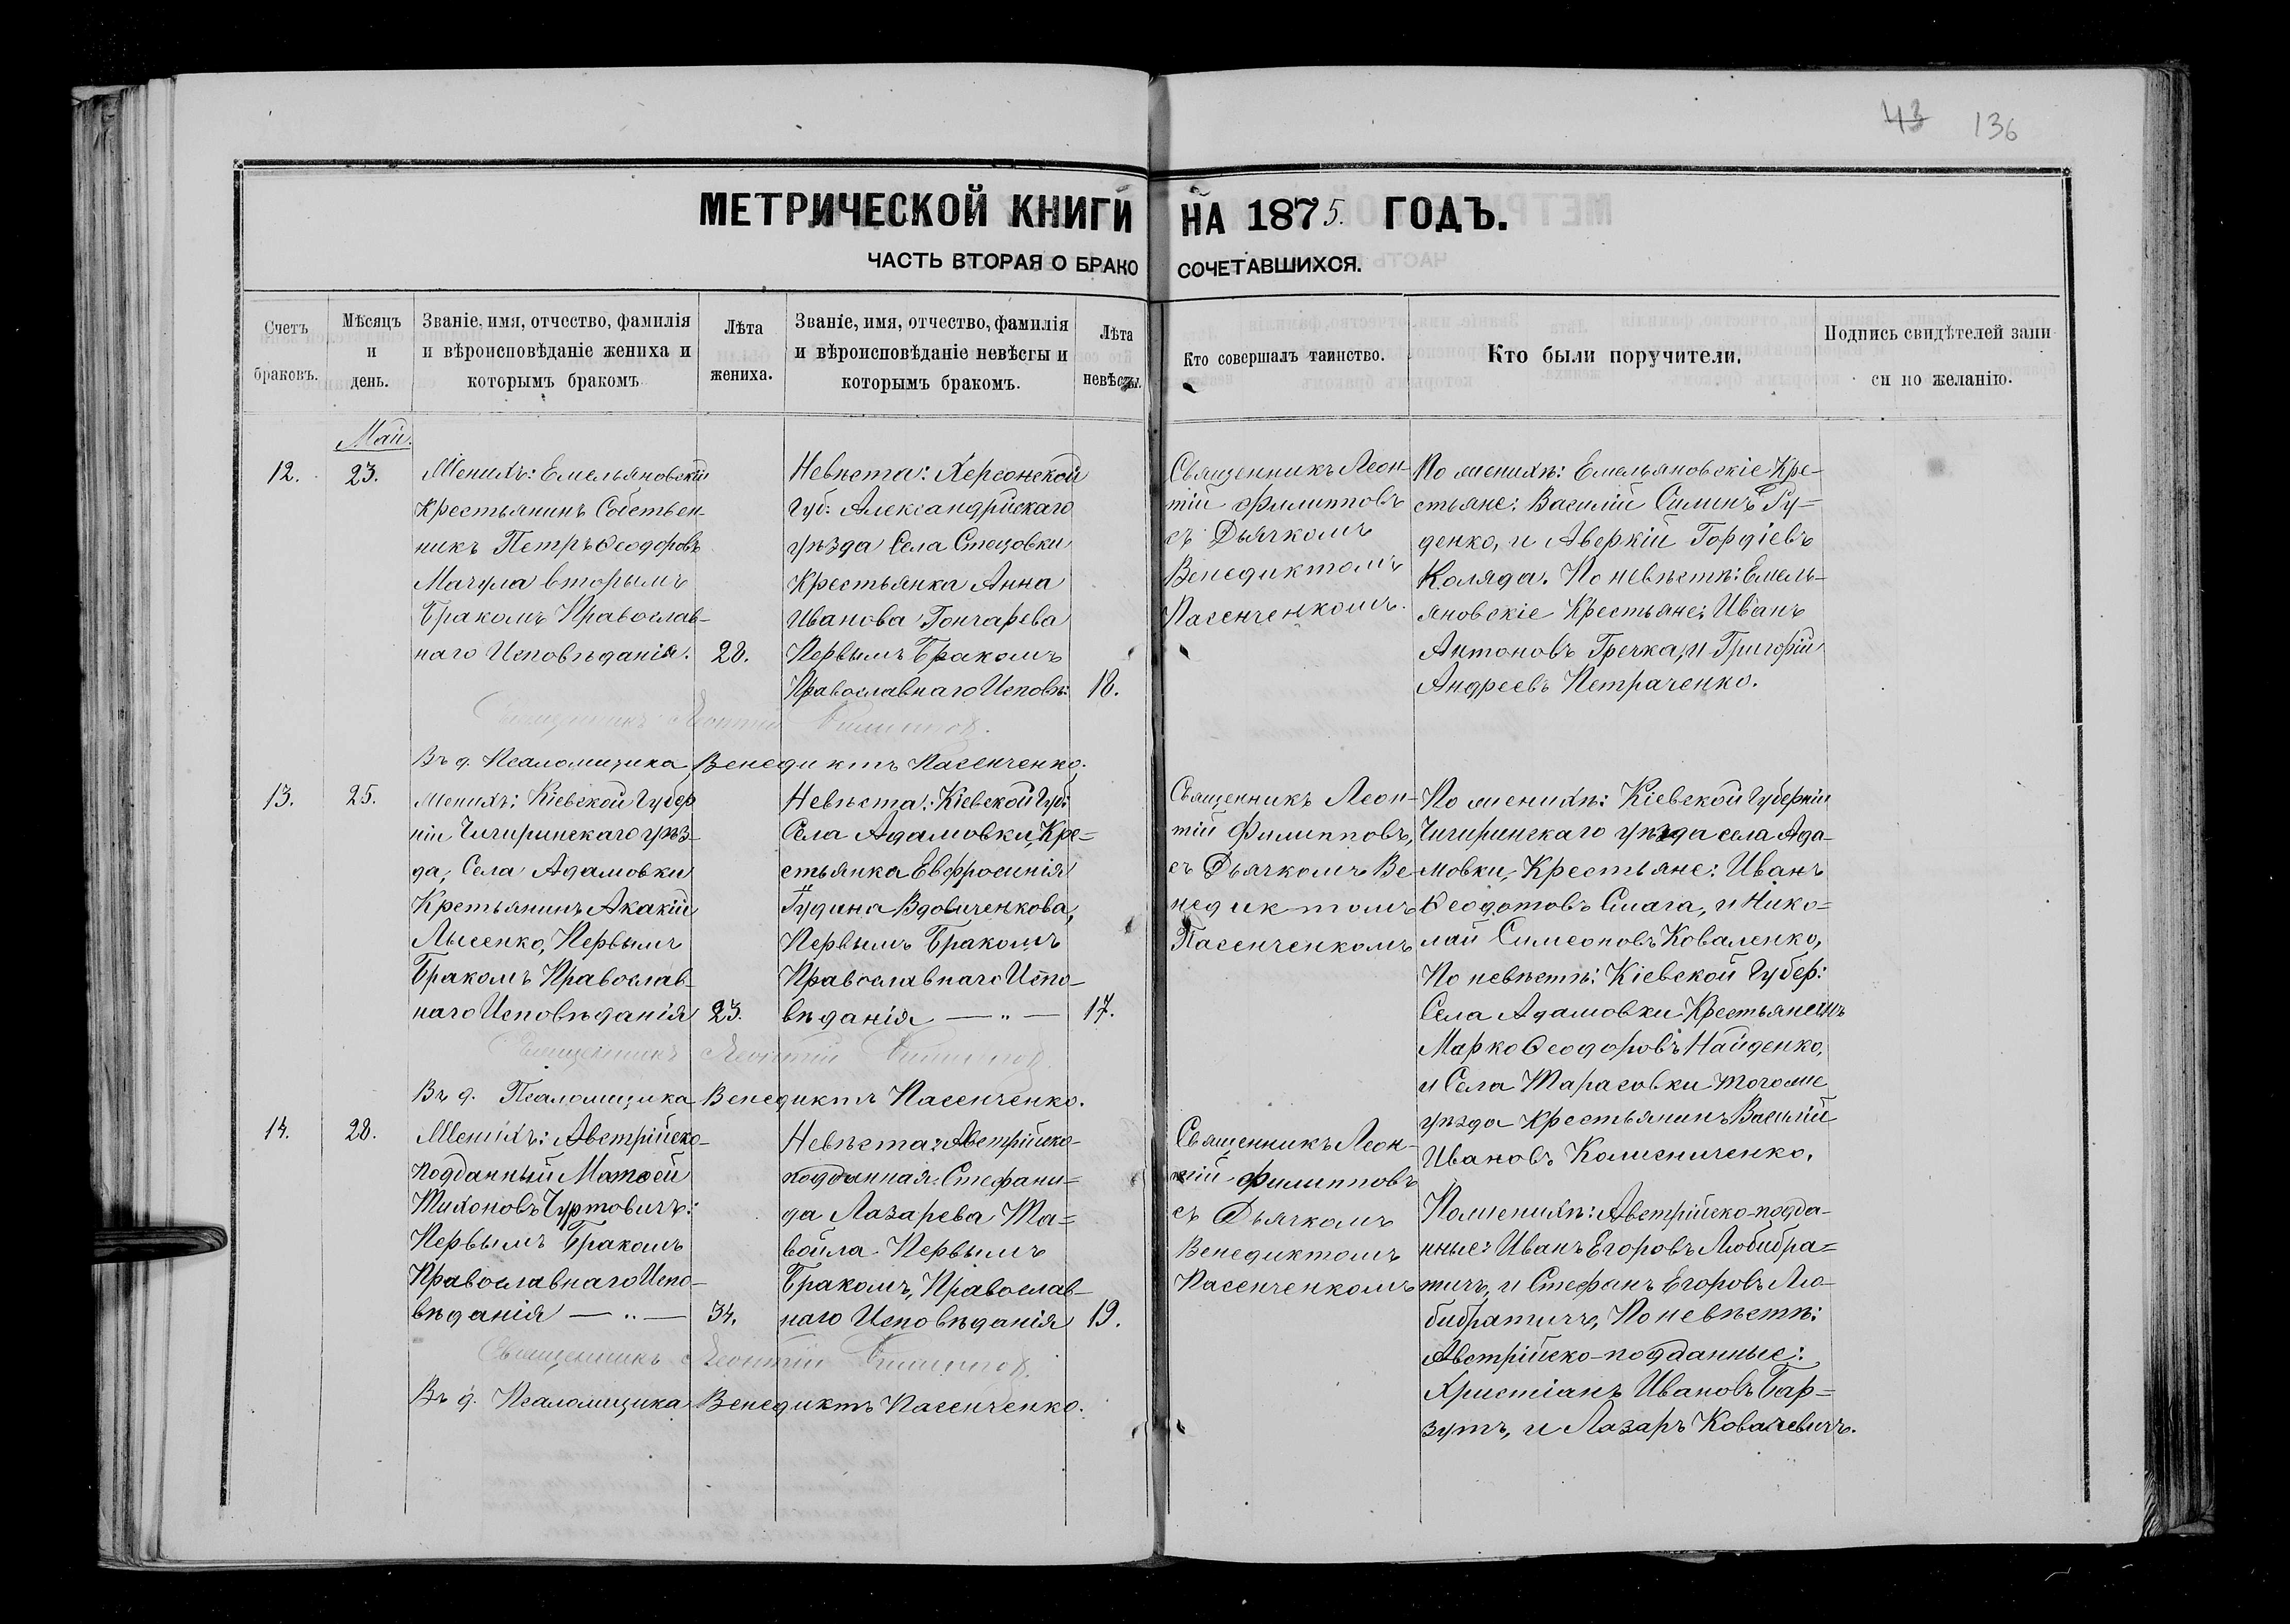 43 136
МЕТРИЧЕСКОЙ КНИГИ НА 1875. ГОДЪ.
ЧАСТЬ ВТОРАЯ О БРАКО СОЧЕТАВШИХСЯ.
Счетъ
браковъ.
Мѣсяцъ
и
день.
Званіе, имя, отчество, фамилія
и вѣроисповѣданіе жениха и
которымъ бракомъ
Лѣта
жениха.
Званіе, имя, отчество, фамилія
и вѣроисповѣданіе невѣсты и
которымъ бракомъ.
Лѣта
невѣсты.
Кто совершалъ таинство.
Кто были поручители.
Подпись свидѣтелей запи
си по желанію.
Май.
12.
23.
Женихъ: Емельяновскій
Крестьянинъ Собствен-
никъ Петръ Ѳеодоровъ
Мачула вторымъ
Бракомъ Православ-
наго Исповѣданія.
28.
Невѣста: Херсонской
Губ: Александрійскаго
уѣзда Села Стецовки
Крестьянка Анна
Иванова Гончарева
Первымъ Бракомъ
Православнаго Исповѣ:
18.
Священникъ Леон-
тій Филипповъ
съ Дьячкомъ
Венедиктомъ
Пасенченкомъ.
По женихѣ: Емельяновскіе Кре-
стьяне: Василій Силинъ Гу=
денко, и Аверкій Гордіевъ
Коляда. По невѣстѣ: Емель-
яновскіе Крестьяне: Иванъ
Антоновъ Гречка, и Григорій
Андреевъ Петраченко.
Священникъ Леонтій Филиппов.
Въ д. Псаломщика Венедиктъ Пасенченко.
13.
25.
Женихъ: Кіевской Губер
ніи Чигиринскаго уѣз-
да, Села Адамовки
Крестьянинъ Акакій
Лысенко, Первымъ
Бракомъ Православ-
наго Исповѣданія
23.
Невѣста: Кіевской Губ:
Села Адамовки, Кре=
стьянка Евфросинія
Гудина Вдовиченкова,
Первымъ Бракомъ
Православнаго Испо-
вѣданія — „ —
17.
Священникъ Леон-
тій Филипповъ,
съ Дьячкомъ Ве-
недиктомъ
Пасенченкомъ
По женихѣ: Кіевской Губерніи
Чигиринскаго уѣзда села Ада-
мовки, Крестьяне: Иванъ
Ѳеодотовъ Смага, и Нико=
лай Симеоновъ Коваленко,
По невѣстѣ: Кіевской Губер:
Села Адамовки Крестьянинъ
Марко Ѳеодоровъ Найденко,
и Села Тарасовки тогоже
уѣзда Крестьянинъ Василій
Ивановъ Колисниченко.
Священникъ Леонтій Филиппов
Въ д. Псаломщика Венедиктъ Пасенченко.
14.
28.
Женихъ: Австрійско-
подданный Матѳей
Тихоновъ Чуртовичъ:
Первымъ Бракомъ
Православнаго Испо-
вѣданія — „ —
34.
Невѣста: Австрійско-
подданная Стефани=
да Лазарева Та=
войла Первымъ
Бракомъ, Православ-
наго Исповѣданія
19.
Священникъ Леон-
тій Филипповъ
съ Дьячкомъ
Венедиктомъ
Пасенченкомъ
По женихѣ: Австрійско-подда-
нные: Иванъ Егоровъ Любибра=
тичъ, и Стефанъ Егоровъ Лю-
бибратичъ, По невѣстѣ:
Австрійско-подданные:
Христіанъ Ивановъ Бар=
зутъ, и Лазаръ Ковачевичъ.
Священникъ Леонтій Филиппов.
Въ д. Псаломщика Венедиктъ Пасенченко.